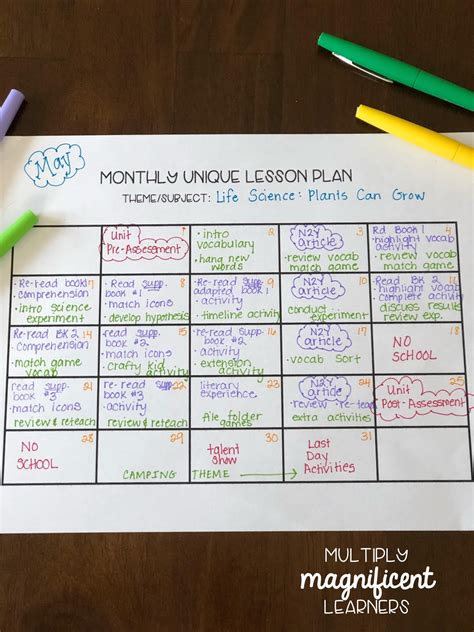 May
MONTHLY UNIQUE LESSON PLAN
THEME/SUBJECT: Life Science: Plants Can Grow
1
Unit
Pre-Assessment
2
• intro
vocabulary
• hang new
words
3
N2Y
article
• review vocab
match game
4
Rd Book 1
• highlight vocab
activity
• review vocab
match game
7
Re-read book 1
• comprehension
• intro science
experiment
8
Read supp.
book #1
• match icons
• develop hypothesis
9
Re-read supp.
adapted book 1
activity
• timeline activity
10
N2Y
article
conduct
experiment
11
Read Book 2
• highlight vocab
• complete activity
discuss results
review exp.
14
Re-read BK 2
• comprehension
• match game
vocab
15
read supp.
book #2
• match icons
• crafty kid
activity
16
re-read supp.
book #2
• activity
• extension
activity
17
N2Y
article
• vocab sort
18
NO
SCHOOL
21
read supp.
book #3
• match icons
review & reteach
22
re-read supp.
book #3
• activity
review & reteach
23
literary
experience
file folder
games
24
N2Y
article
• review
extra activities
25
Unit
Post-Assessment
28
NO
SCHOOL
29
CAMPING
30
talent
show
THEME
31
Last
Day
Activities
MULTIPLY
magnificent
LEARNERS